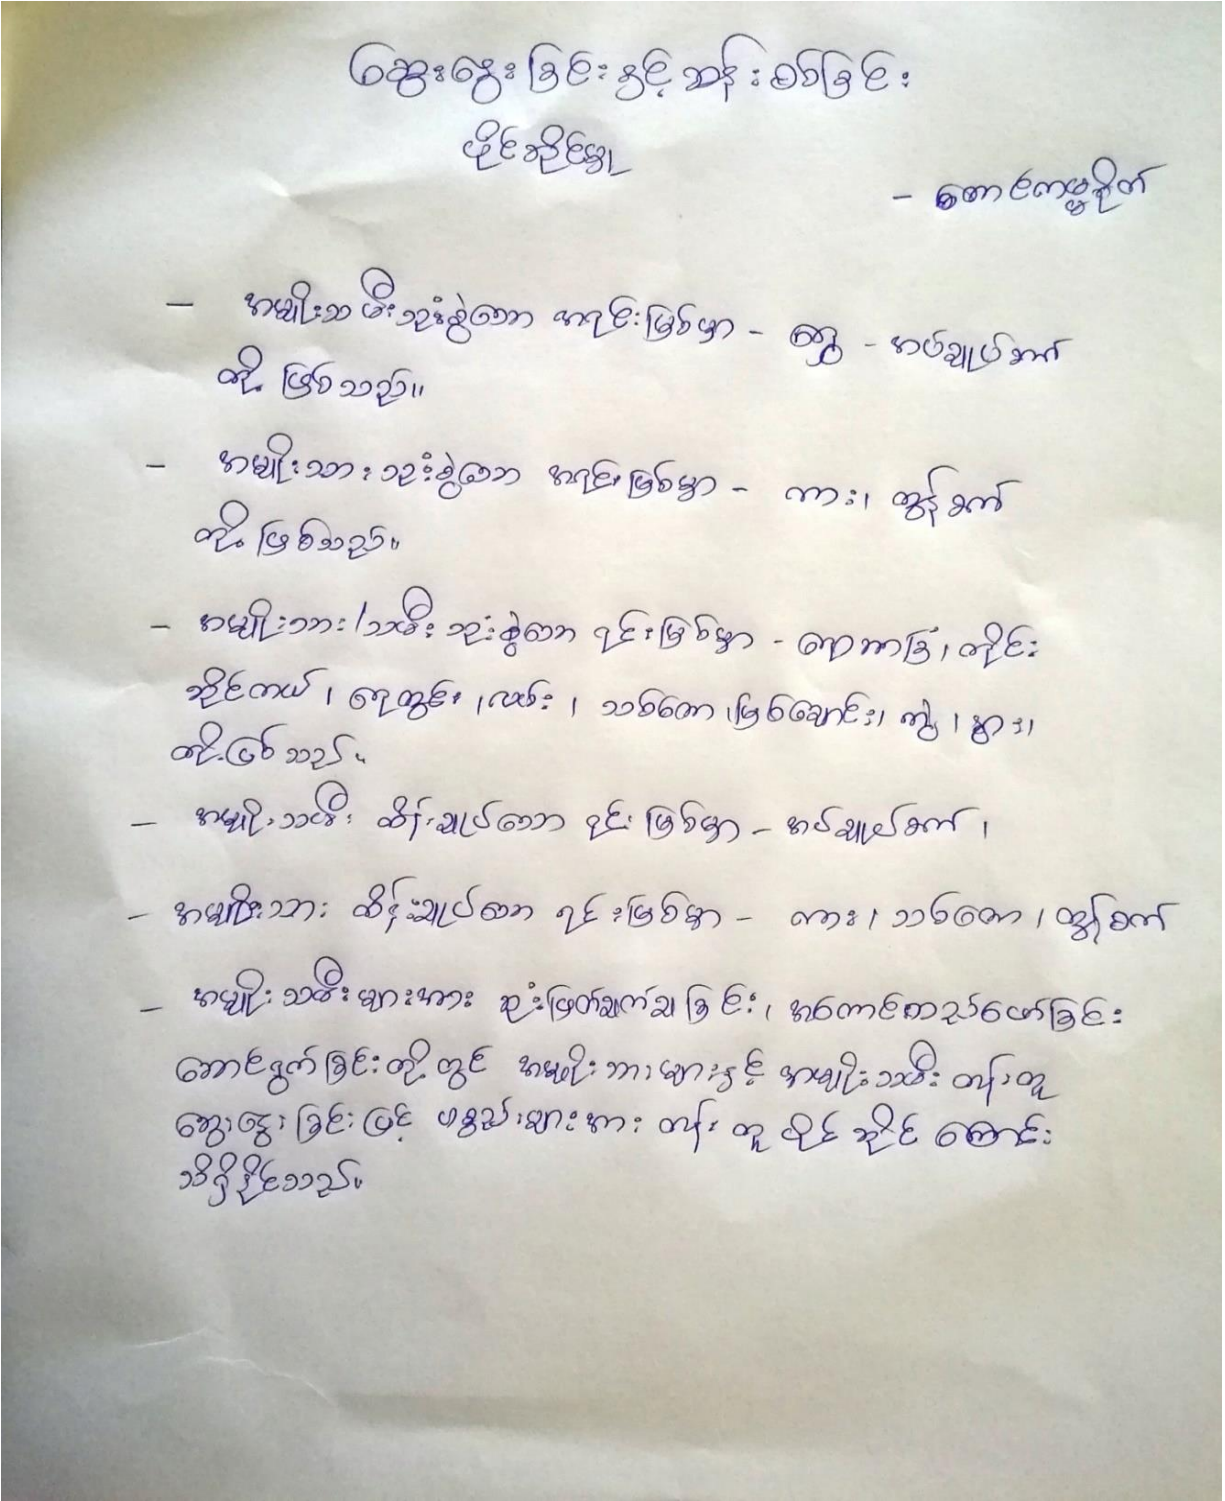 ဆွေးနွေးခြင်းနှင့်ဆန်းစစ်ခြင်း
ပိုင်ဆိုင်မှု
–
– အမျိုးသမီးသုံးစွဲသော အရင်းမြစ်မှာ – ရွှေ – အပ်ချုပ်စက်
တို့ ဖြစ်သည်။
– အမျိုးသားသုံးစွဲသော အရင်းမြစ်မှာ – ကား၊ ထွန်စက်
တို့ ဖြစ်သည်။
– အမျိုးသား/သမီး သုံးစွဲသော ရင်းမြစ်မှာ – ယာခြံ၊ တိုင်း
ဆိုင်ကယ်၊ ရေတွင်း၊ လမ်း၊ သစ်တော၊ မြစ်ချောင်း၊ ကျွဲ၊ နွား၊
တို့ဖြစ်သည်။
– အမျိုးသမီး ထိန်းချုပ်သော ရင်းမြစ်မှာ – အပ်ချုပ်စက်၊
– အမျိုးသား ထိန်းချုပ်သော ရင်းမြစ်မှာ – ကား၊ သစ်တော၊ ထွန်စက်
– အမျိုးသမီးများအား ဆုံးဖြတ်ချက်ချခြင်း၊ အကောင်အထည်ဖော်ခြင်း
ဆောင်ရွက်ခြင်းတို့တွင် အမျိုးသားများနှင့် အမျိုးသမီး တန်းတူ
ဆွေးနွေးခြင်းဖြင့် ပစ္စည်းများအား တန်းတူ ပိုင်ဆိုင်ကြောင်း
သိရှိနိုင်သည်။